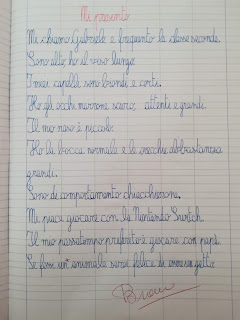 Mi presento
Mi chiamo Gabriele e frequento la classe seconda.
Sono alto, ho il viso lungo.
I miei capelli sono biondi e corti.
Ho gli occhi marrone scuro, attenti e grandi.
Il mio naso è piccolo.
Ho la bocca normale e le orecchie abbastanza
grandi.
Sono di comportamento chiacchierone.
Mi piace giocare con la Nintendo Switch.
Il mio passatempo preferito è giocare con papà.
Se fossi un animale sarei felice di essere
Bravo